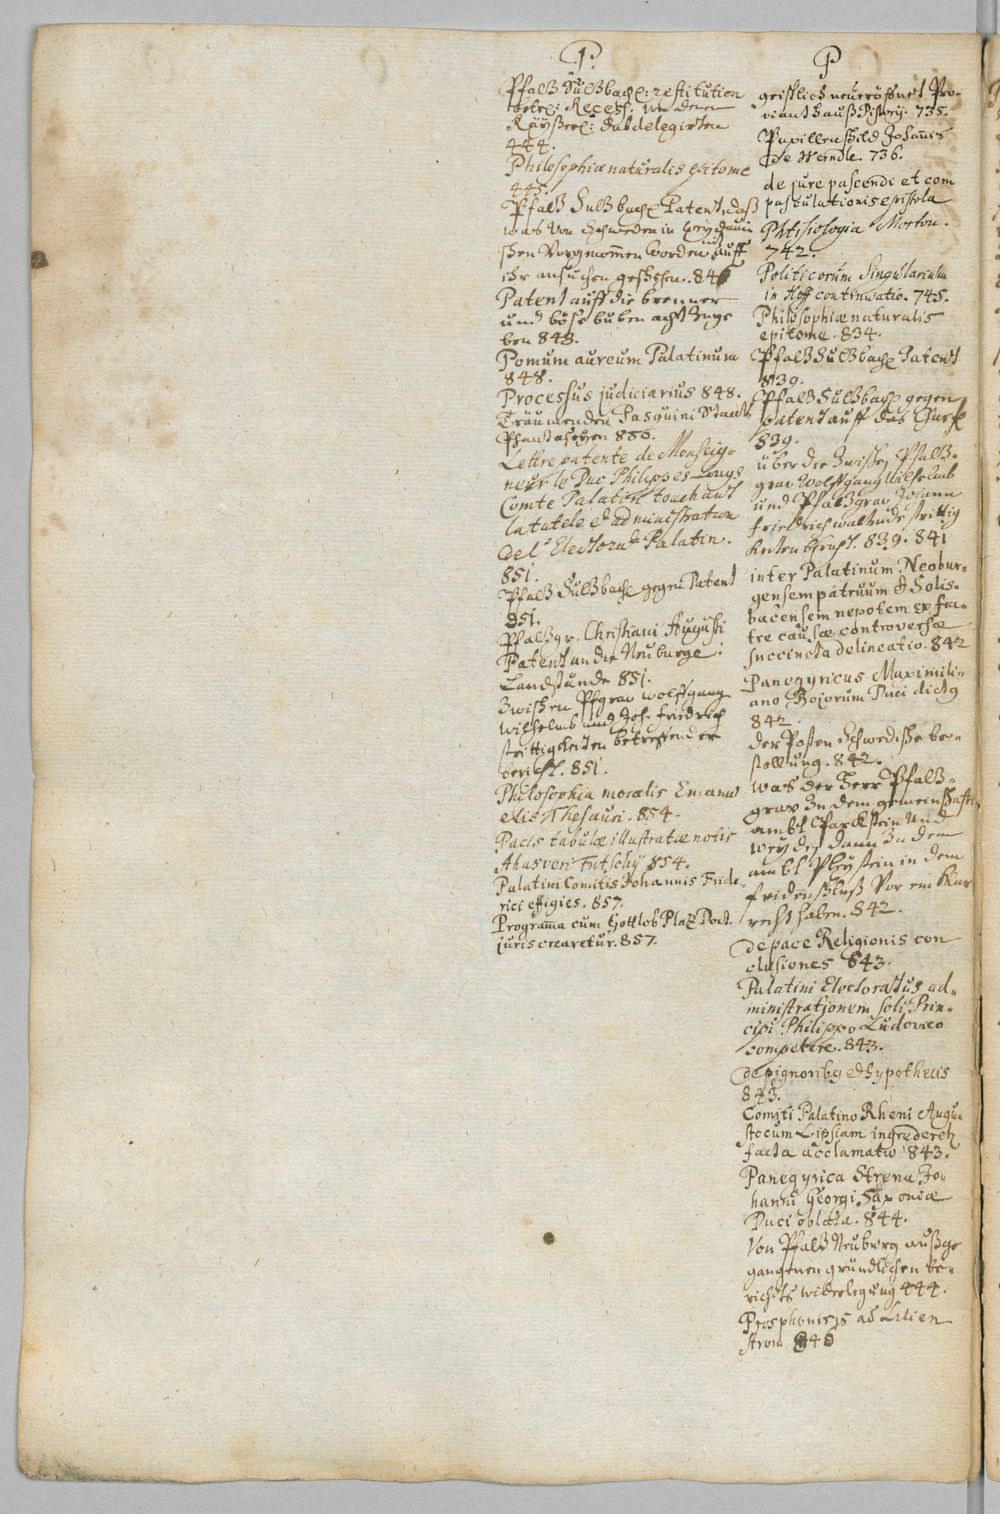 P.
Pfaltz Sultzbach: restitution
betr: Recess: von denen
Käyserl: Subdelegirten
444.
Philosophiæ naturalis epitome
445.
Pfaltz Sultzbach Patent, daß
was von Schweden in
schen vorgenommen worden, auff
ihr ansuchen geschehen. 846
Patent auff die brenner
und böse buben acht zuge
ben 848.
Pomum aureum Palatinum
848.
Processus judiciarius 848.
Träumenden Pasquini Staats
Phantaseyen 850.
Lettre patente de Monseig-
neur le Duc Philippes Louys
Comte Palatin touchant
la tutele et administration
de l'Electorat Palatin.
851.
Pfaltz Sultzbach gegen Patent
851.
Pfaltzgr. Christiani Augusti
Patent an die Neuburge:
Landstände 851.
Zwischen Pfgrav Wolffgang
Wilhelmb und Joh. Fridrich
strittigkeiten betreffender
bericht. 851.
Philosophia moralis Emanu
elis Thesauri. 854.
Pacis tabulæ illustratæ notis
Ahasveri Fritschij 854.
Palatini Comitis Johannis Fride
rici effigies. 857.
Programa cum Gottlob Platz Doct.
juris crearetur. 857.
P
geistlich neueröffnet Pro-
viant hauß Pistorij. 735.
Pupillenschild Johannis
de Weindle. 736.
de jure pascendi et com
pasculationis epistola
Phtisiologia Morton.
742.
Politicorum Singularium
in Hoff continuatio. 745.
Philosophiæ naturalis
epitome. 834.
Pfaltz Sultzbach Patent
839.
Pfaltz Sultzbach gegen
patent auff das
839.
über die zwischen Pfaltz-
grav Wolffgang Wilhelmb
und Pfaltzgrav Johann
Friedrich waltende strittig
keiten bericht. 839. 841
inter Palatinum Neobur-
gensem patruum et Solis-
bacensem nepotem ex fra-
tre causæ controversæ
succincta delineatio. 842
Panegyricus Maximili-
ano Bojorum Duci dictus
842.
der Posten Schwedische be-
stellung. 842.
was der Herr Pfaltz-
grav zu dem gemeinschafftl.
ambt Parckstein und
Weyden dann zu dem
ambt Pleystein in dem
fridensschluß vor ein klar
recht haben. 842.
de pace Religionis con
clusiones 843.
Palatini Electoratus ad-
ministrationem soli Prin-
cipi Philippo Ludovico
competere. 843.
de pignoribus et hypothecis
843.
Comiti Palatino Rheni Augu
sto cum Lipsiam ingrederetur
facta acclamatio 843.
Panegyrica Strena Jo-
hanni Georgi Saxoniæ
Duci oblata. 844.
Von Pfaltz Neuburg außge
gangenen gründlichen be-
richts widerlegung 444.
Prosphonesis ad Lilien
strom 846